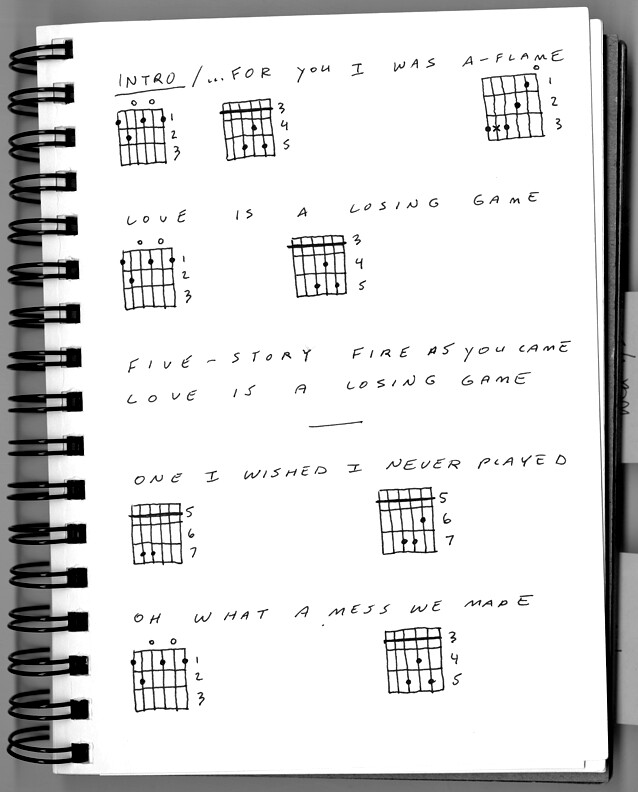 INTRO /...FOR YOU I WAS A-FLAME
3 1
1 4 2
2 5 3
3
LOVE IS A LOSING GAME
1 3
2 4
3 5
FIVE-STORY FIRE AS YOU CAME
LOVE IS A LOSING GAME
ONE I WISHED I NEVER PLAYED
5 5
6 6
7 7
OH WHAT A MESS WE MADE
1 3
2 4
3 5